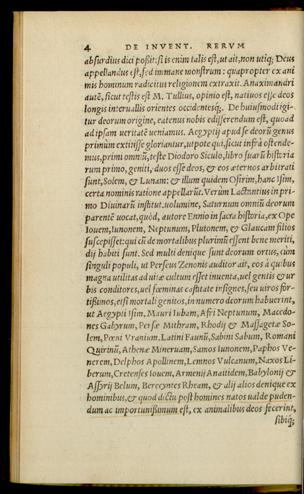 4 DE INVENT. RERVM
absurdius dici possit: si is enim talis est, ut ait, non utiq; Deus
appellandus est, sed immane monstrum: quapropter ex ani
mis hominum radicitus religionem extraxit. Anaximandri
autẽ, sicut testis est M. Tullius, opinio est, natiuos esse deos
longis interuallis orientes occidentesq;. De huiusmodi igi-
tur deorum origine, eatenus nobis edisserendum est, quoad
ad ipsam ueritatẽ ueniamus. Aegyptij apud se deorũ genus
primum extitisse gloriantur, utpote qui, sicut infrà ostende-
mus, primi omniũ, teste Diodoro Siculo, libro suarũ histoŕia
rum primo, geniti, duos esse deos, & eos aeternos arbitrati
sunt, Solem, & Lunam: & illum quidem Osirim, hanc Isim,
certa nominis ratione appellarũt. Verùm Lactantius in pri-
mo Diuinarũ institut. uolumine, Saturnum omniũ deorum
parentẽ uocat, quòd, autore Ennio in sacra historia, ex Ope
Iouem, Iunonem, Neptunum, Plutonem, & Glaucam filios
suscepisset: qui cũ de mortalibus plurimũ essent bene meriti,
dij habiti sunt. Sed multi denique sunt deorum ortus, cùm
singuli populi, ut Perseus Zenonis auditor ait, eos à quibus
magna utilitas ad uitæ cultum esset inuenta, uel gentis & ur
bis conditores, uel fœminas castitate insignes, seu uiros for-
tissimos, etsi mortali genitos, in numero deorum habuerint,
ut Aegyptij Isim, Mauri Iubam, Afri Neptunum, Macedo-
nes Gabyrum, Persæ Mithram, Rhodij & Massagetæ So-
lem, Pœni Vranium, Latini Faunũ, Sabini Sabum, Romani
Quirinũ, Athenæ Mineruam, Samos Iunonem, Paphos Ve-
nerem, Delphos Apollinem, Lemnos Vulcanum, Naxos Li-
berum, Cretenses Iouem, Armenij Anaitidem, Babylonij &
Assyrij Belum, Berecyntes Rheam, & alij alios denique ex
hominibus, & quod dictu post homines natos ualde puden-
dum ac importunissimum est, ex animalibus deos fecerint,
sibiq;